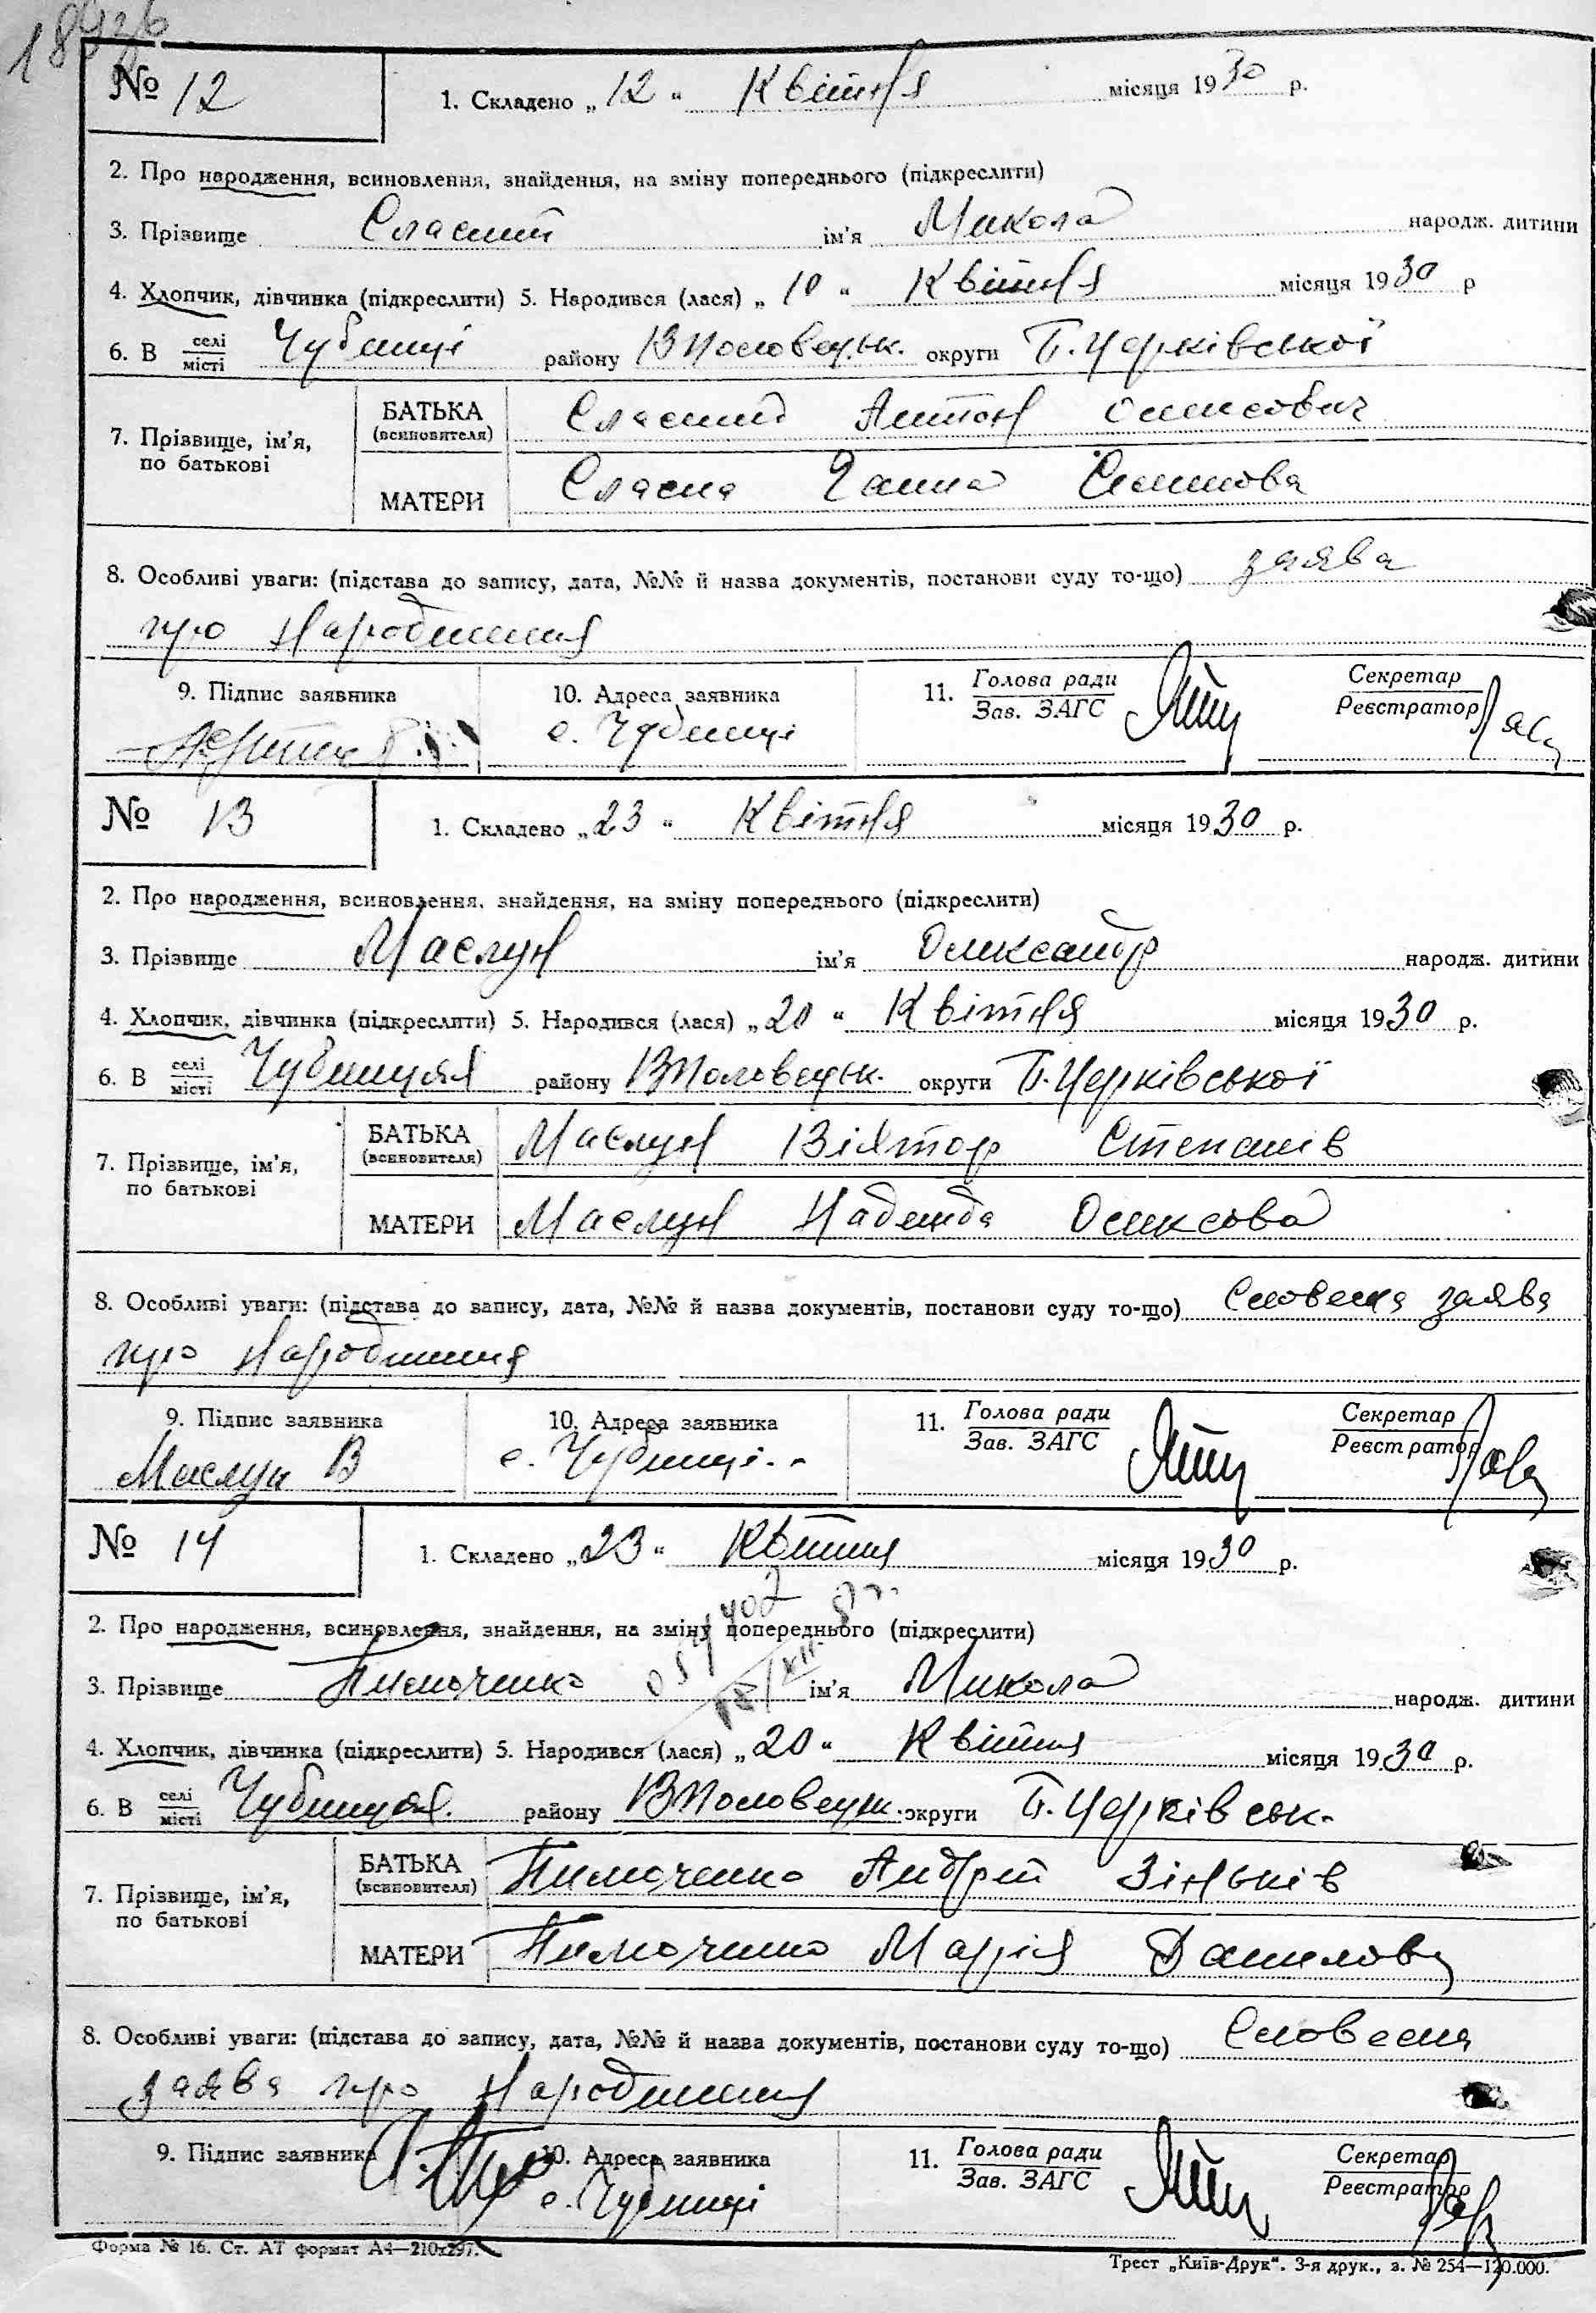 № 12
1. Складено „12“ Квітня місяця 1930 р.
2. Про народження, всиновлення, знайдення, на зміну попереднього (підкреслити)
3. Прізвище Сласний ім'я Микола народж. дитини
4. Хлопчик, дівчинка (підкреслити) 5. Народився (лася) „10“ Квітня місяця 1930 р
6. В селі місті Чубинці району ВПоловецьк. округи Б.Церківської
7. Прізвище, ім'я, по батькові
БАТЬКА (всиновителя) Антон
МАТЕРИ Сласна Ганна
8. Особливі уваги: (підстава до запису, дата, №№ й назва документів, постанови суду то-що) заява
про народження
9. Підпис заявника 10. Адреса заявника 11. Голова ради Зав. ЗАГС Секретар Реєстратор
с. Чубинці
№ 13
1. Складено „23“ Квітня місяця 1930 р.
2. Про народження, всиновлення, знайдення, на зміну попереднього (підкреслити)
3. Прізвище Маслун ім'я Олександр народж. дитини
4. Хлопчик, дівчинка (підкреслити) 5. Народився (лася) „20“ Квітня місяця 1930 р.
6. В селі місті Чубинцях району ВПоловецьк. округи Б.Церківської
7. Прізвище, ім'я, по батькові
БАТЬКА (всиновителя) Маслун Віктор Степанів
МАТЕРИ Маслун Надежда Олексова
8. Особливі уваги: (підстава до запису, дата, №№ й назва документів, постанови суду то-що) Словесна заява
про народження
9. Підпис заявника 10. Адреса заявника 11. Голова ради Зав. ЗАГС Секретар Реєстратор
Маслун В с. Чубинці
№ 14
1. Складено „23“ Квітня місяця 1930 р.
2. Про народження, всиновлення, знайдення, на зміну попереднього (підкреслити)
3. Прізвище Тимоченко ім'я Микола народж. дитини
4. Хлопчик, дівчинка (підкреслити) 5. Народився (лася) „20“ Квітня місяця 1930 р.
6. В селі місті Чубинцях. району ВПоловецьк. округи Б.Церківськ.
7. Прізвище, ім'я, по батькові
БАТЬКА (всиновителя) Тимоченко Андрій Зіньків
МАТЕРИ Тимоченко Марія Данилова
8. Особливі уваги: (підстава до запису, дата, №№ й назва документів, постанови суду то-що) Словесна
заява про народження
9. Підпис заявника 10. Адреса заявника 11. Голова ради Зав. ЗАГС Секретар Реєстратор
с. Чубинці
Форма № 16. Ст. АТ формат А4—210х297.
Трест „Київ-Друк“. 3-я друк., з. № 254—120.000.